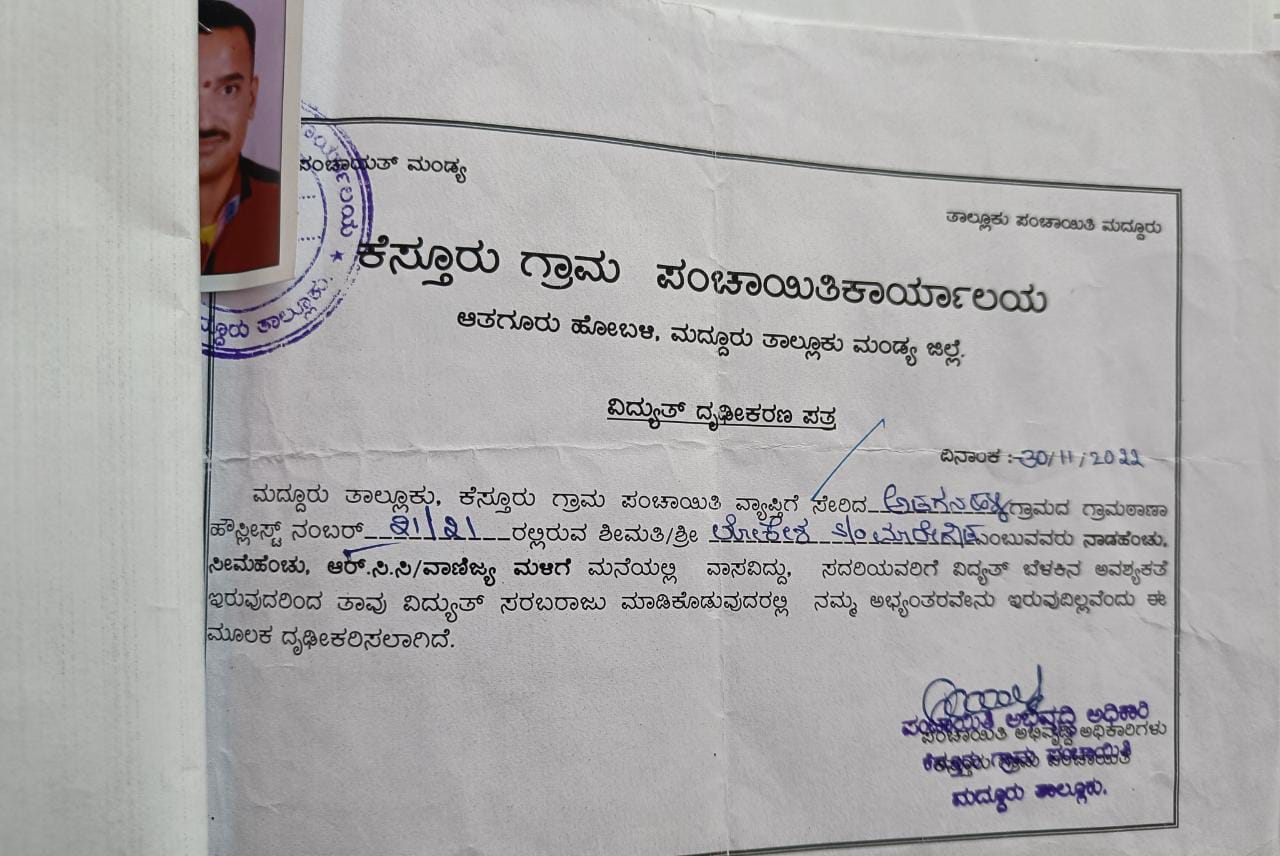 ಪಂಚಾಯತ್ ಮಂಡ್ಯ
ತಾಲ್ಲೂಕು ಪಂಚಾಯಿತಿ ಮದ್ದೂರು
ಕೆಸ್ತೂರು ಗ್ರಾಮ ಪಂಚಾಯಿತಿಕಾರ್ಯಾಲಯ
ಆತಗೂರು ಹೋಬಳಿ, ಮದ್ದೂರು ತಾಲ್ಲೂಕು ಮಂಡ್ಯ ಜಿಲ್ಲೆ.
ವಿದ್ಯುತ್ ದೃಢೀಕರಣ ಪತ್ರ
ದಿನಾಂಕ :-30/11/2022
ಮದ್ದೂರು ತಾಲ್ಲೂಕು, ಕೆಸ್ತೂರು ಗ್ರಾಮ ಪಂಚಾಯಿತಿ ವ್ಯಾಪ್ತಿಗೆ ಸೇರಿದ ಗ್ರಾಮದ ಗ್ರಾಮಠಾಣಾ
ಹೌಸ್ಲೀಸ್ಟ್ ನಂಬರ್ ರಲ್ಲಿರುವ ಶ್ರೀಮತಿ/ಶ್ರೀ ಲೋಕೇಶ ಎಂಬುವವರು ನಾಡಹೆಂಚು,
ಸೀಮೆಹೆಂಚು, ಆರ್.ಸಿ.ಸಿ/ವಾಣಿಜ್ಯ ಮಳಿಗೆ ಮನೆಯಲ್ಲಿ ವಾಸವಿದ್ದು, ಸದರಿಯವರಿಗೆ ವಿದ್ಯತ್ ಬೆಳಕಿನ ಅವಶ್ಯಕತೆ
ಇರುವುದರಿಂದ ತಾವು ವಿದ್ಯುತ್ ಸರಬರಾಜು ಮಾಡಿಕೊಡುವುದರಲ್ಲಿ ನಮ್ಮ ಅಭ್ಯಂತರವೇನು ಇರುವುದಿಲ್ಲವೆಂದು ಈ
ಮೂಲಕ ದೃಢೀಕರಿಸಲಾಗಿದೆ.
ಪಂಚಾಯಿತಿ ಅಭಿವೃದ್ಧಿ ಅಧಿಕಾರಿ
ಪಂಚಾಯಿತಿ ಅಭಿವೃದ್ಧಿ ಅಧಿಕಾರಿಗಳು
ಕೆಸ್ತೂರು ಗ್ರಾಮ ಪಂಚಾಯಿತಿ
ಮದ್ದೂರು ತಾಲ್ಲೂಕು.